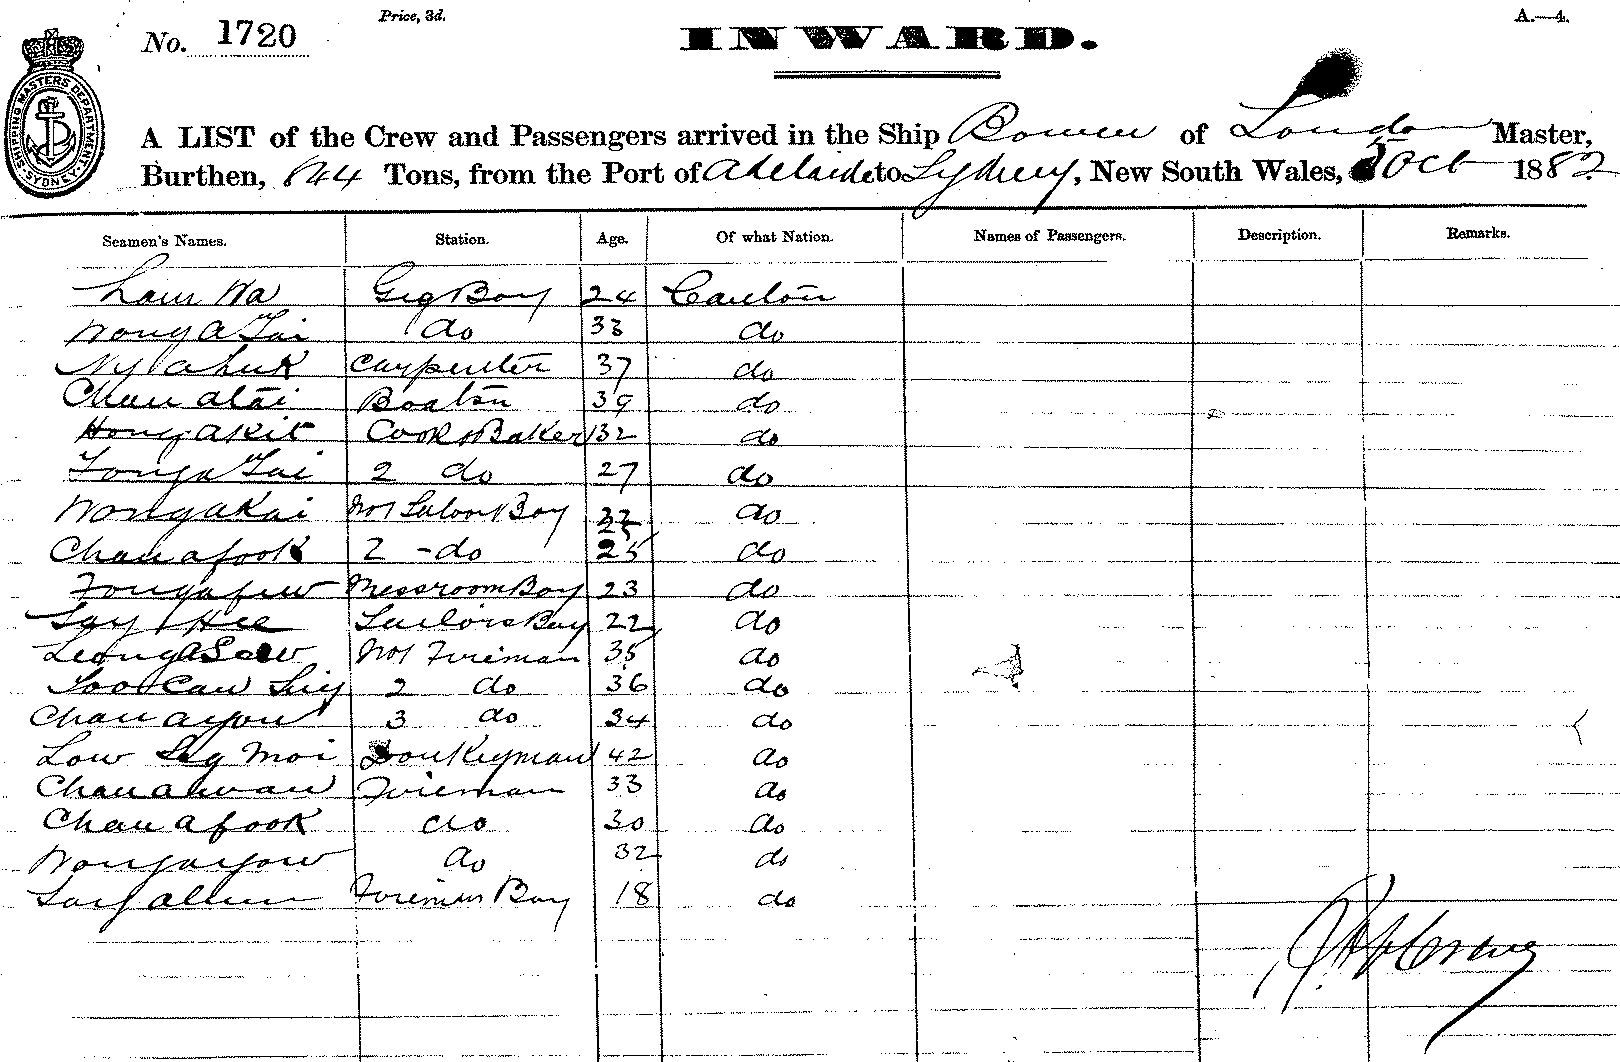 Price, 3d.
A.—4.
No. 1720
INWARD.
SHIPPING MASTERS DEPARTMENT SYDNEY
A LIST of the Crew and Passengers arrived in the Ship Bowen of London Master,
Burthen, 844 Tons, from the Port of Adelaide to Sydney, New South Wales, Oct 1882
Seamen's Names. Station. Age. Of what Nation. Names of Passengers. Description. Remarks.
Lam Wa Gig Boy 24 Canton
Wong a Tai do 33 do
Carpenter 37 do
Chan atai Boatsn 39 do
Hong akit Cook & Baker 32 do
Tong a Tai 2 do 27 do
Wong a Kai No 1 Saloon Boy do
Chan a fook 2 - do 25 do
Messroom Boy 23 do
Hee Sailors Boy 22 do
Leong No 1 Fireman 35 do
2 do 36 do
Chan ayow 3 do 34 do
Low Moi Donkeyman 42 do
Chan Fireman 33 do
Chan a fook do 30 do
Wong ayow do 32 do
Boy 18 do